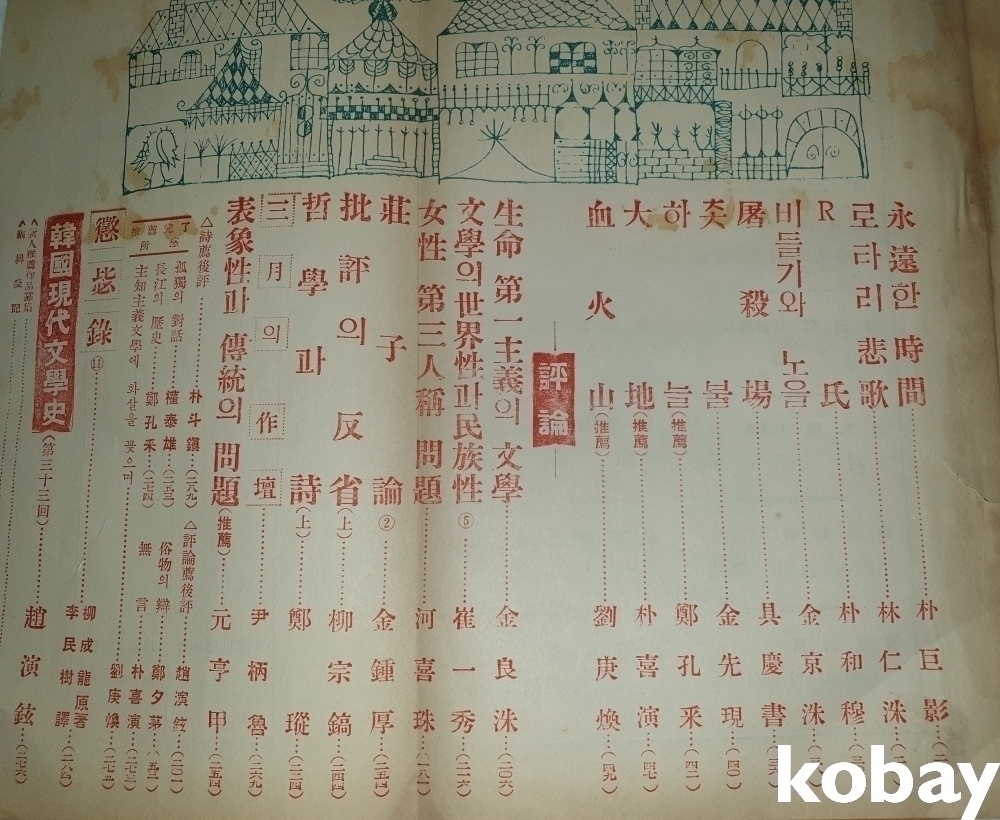 永遠한 時間 朴巨影
로타리 悲歌 林仁洙
R氏 朴和穆
비들기와 노을 金京洙
屠殺場 具慶書
촛불 金先現 (四〇)
하늘 (推薦) 鄭孔釆 (四二)
大地 (推薦) 朴喜演 (四七)
血火山 劉庚煥 (四九)
評論
生命 第一主義의 文學 金良洙 (二〇六)
文學의 世界性과 民族性 ⑤ 崔一秀 (二一六)
女性 第三人稱 問題 河喜珠 (一八一)
莊子論 ② 金鍾厚 (二五四)
批評의 反省 (上) 柳宗鎬 (二四四)
哲學과 詩 (上) 鄭瑽 (二三四)
三月의 作壇 尹柄魯 (二六九)
表象性과 傳統의 問題 (推薦) 元亨甲 (二五四)
△詩薦後評 朴斗鎭 (二八九) △評論薦後評 趙演鉉 (二〇一)
推薦完了所感
孤獨의 對話 權泰雄 (二五三) 俗物의 辯 鄭夕茅 (五三)
長江의 歷史 鄭孔釆 (二七四) 無言 朴喜演 (二七三)
主知主義文學에 화살을 꽂으며 劉庚煥 (二七五)
懲毖錄 ⑪ 柳成龍 原著 李民樹 譯 (二八四)
韓國現代文學史 (第三十三回) 趙演鉉 (二七六)
人推薦作品募集
編輯後記
kobay